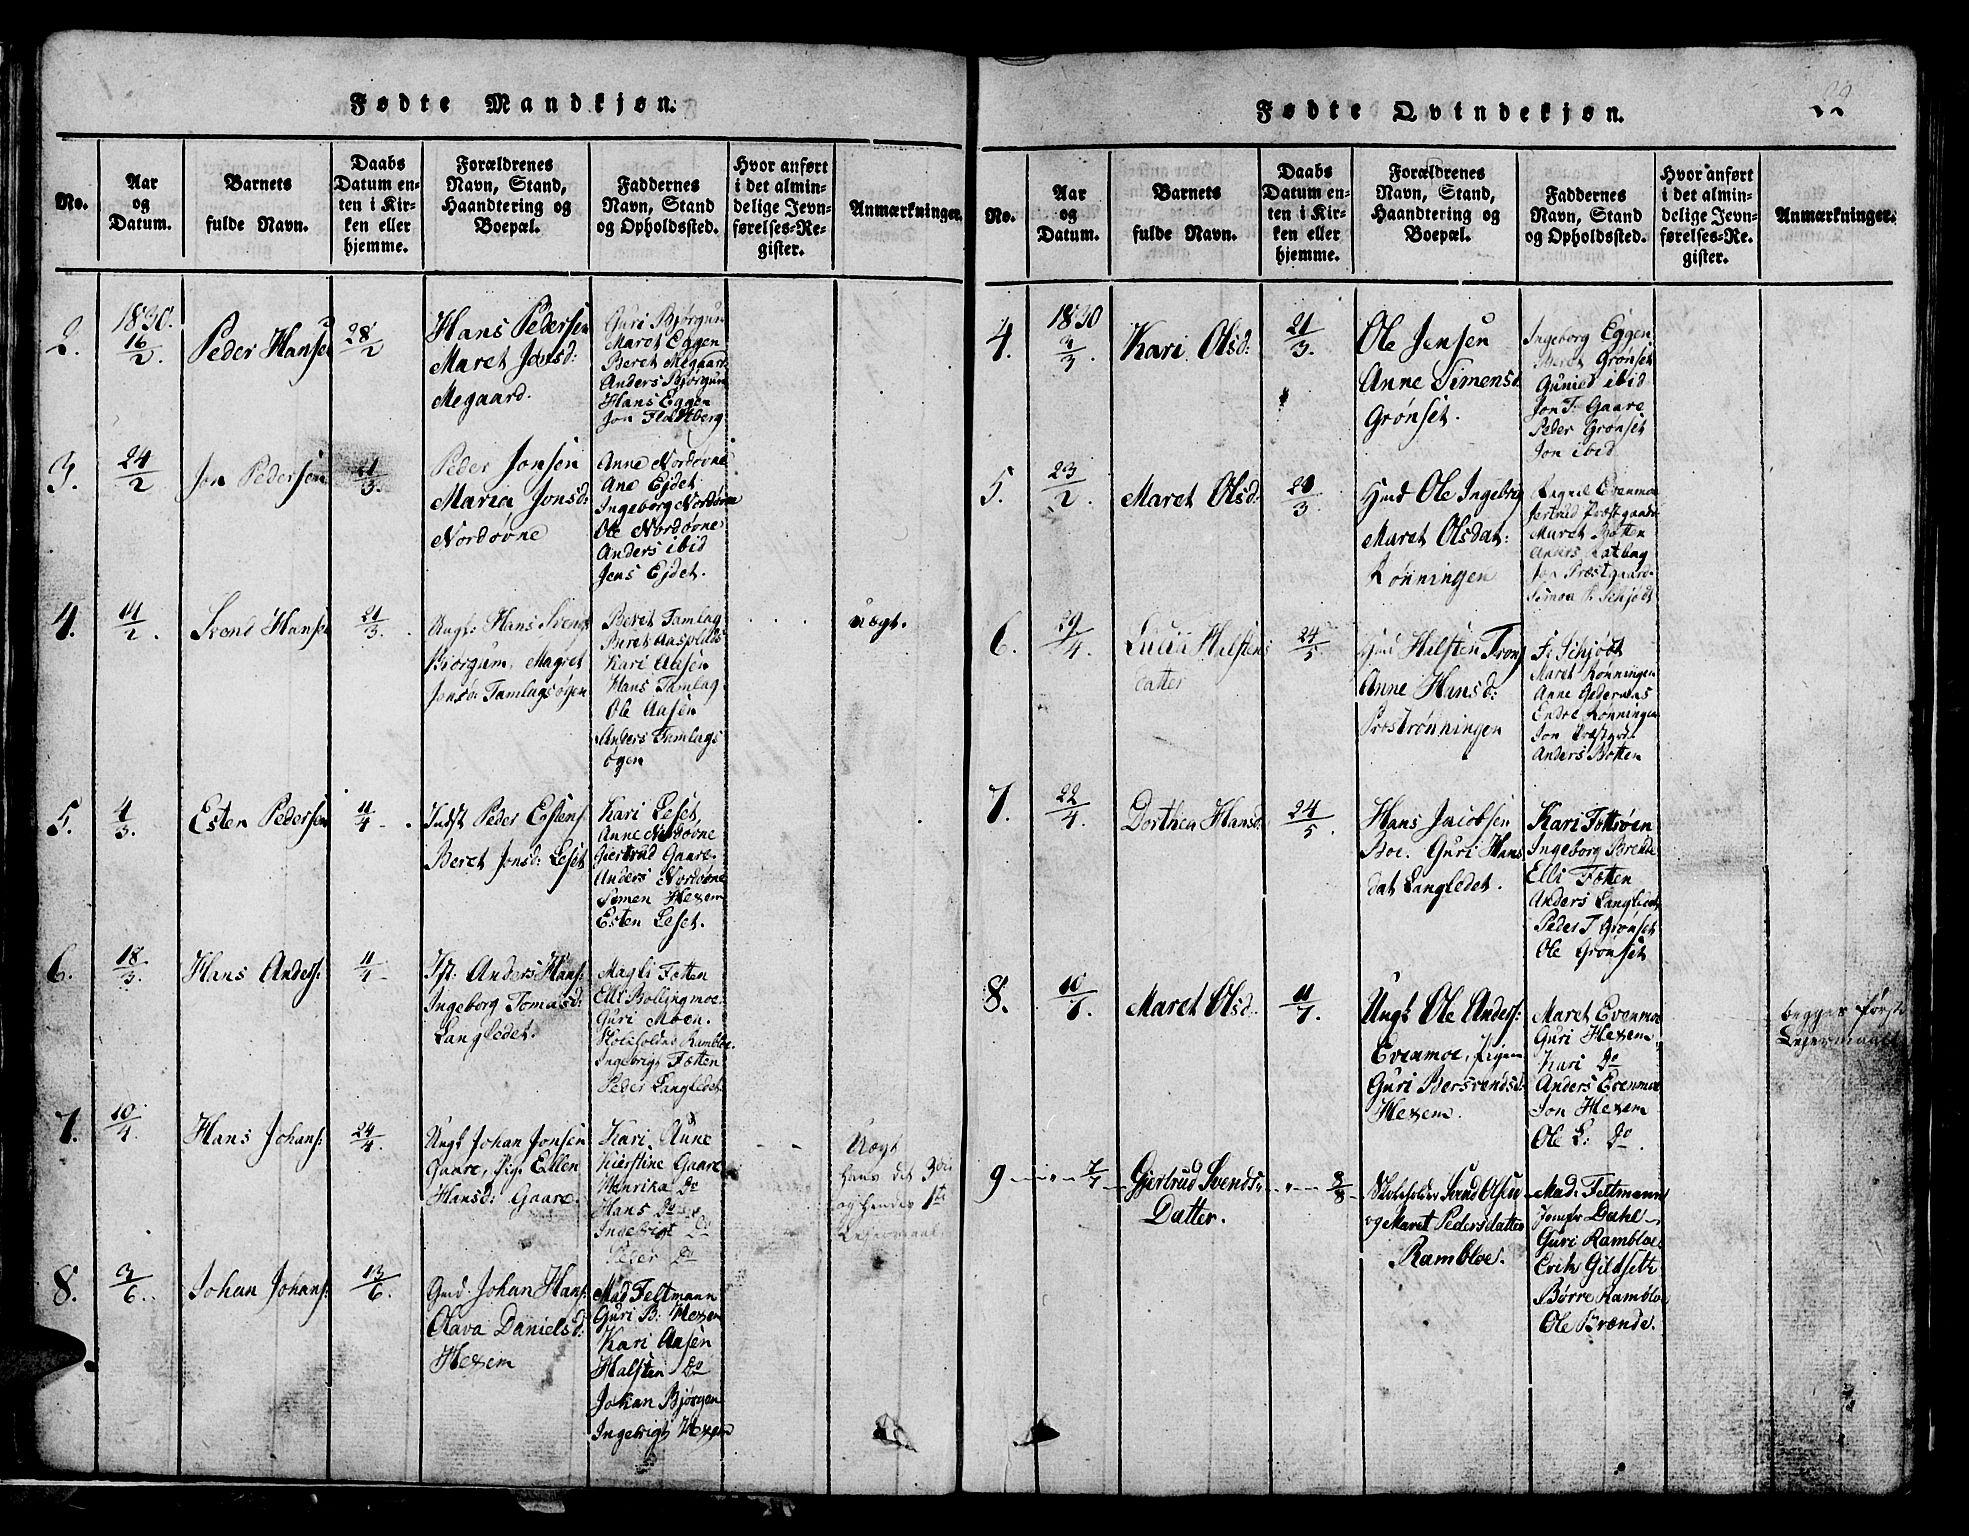 Fødte Mandkjøn.
No.
Aar
og
Datum.
Barnets
fulde Navn.
Daabs
Datum en-
ten i Kir-
ken eller
hjemme.
Forældrenes
Navn, Stand,
Haandtering og
Boepæl.
Faddernes
Navn, Stand
og Opholdssted.
Hvor anført
i det almin-
delige Jevn-
førelses-Re-
gister.
Anmærkninger.
2.
1830.
16/2.
Peder Hansen
28/2
Hans Pedersen
Maret Jonsd:
Megaard.
Guri Bjørgum
Maret Eggen
Beret Megaard
Anders Bjørgum
Hans Eggen
Jon Flatberg
3.
24/2
Jon Pedersen
21/3.
Peder Jonsen
Maria Jonsd:
Nordøvne
Anne Nordøvne
Ane Ejdet
Ingeborg Nordøvne
Ole Nordøvne
Anders ibid
Jens Ejdet.
4.
14/2.
Svend Hansen
21/3.
Ungk: Hans Svends
Bjørgum, Magret
Jonsdr Tamlagsøgen
Beret Tamlag
Beret Aasvolds
Kari Aasen
Hans Tamlag
Ole Aasen
Anders Tamlags
øgen
uægt.
5.
4/3.
Esten Pedersen
11/4.
Indst Peder Estens
Beret Jonsd: Leset
Kari Leset,
Anne Nordøvne
Giertrud Gaare.
Anders Nordøvne
Simen Hexem
Esten Leset.
6.
18/3.
Hans Anders:
11/4
Ist. Anders Hans:
Ingeborg Tomasd:
Langledet.
Magli Fotten
Elli Bollingmoe.
Guri Moen.
Skoleholder Rambloe.
Ingebrigt Fotten
Peder Langledet
7.
10/4.
Hans Johans:
24/4
Ungk Johan Jonsen
Gaare, Pig: Ellen
Hansd: Gaare.
Kari Aune
Kierstine Gaare
Henrika Do
Hans Do
Ingebrigt Do
Peter Do
Uægt
hans det 3die
og hendes 1te
Lejermaal.
8.
3/6.
Johan Johans:
13/6.
Gmd. Johan Hans:
Olava Danielsd:
Hexem
Mad Feltmann
Guri B. Hexem
Kari Aasen
Halsten Do
Johan Bjørgen
Ingebrigt Hexem
Fødte Qvindekjøn.
22
No.
Aar
og
Datum.
Barnets
fulde Navn.
Daabs
Datum en-
ten i Kir-
ken eller
hjemme.
Forældrenes
Navn, Stand,
Haandtering og
Boepæl.
Faddernes
Navn, Stand
og Opholdssted.
Hvor anført
i det almin-
delige Jevn-
førelses-Re-
gister.
Anmærkninger.
4.
1830
3/3.
Kari Olsd:
21/3.
Ole Jensen
Anne Simensd.
Grønset.
Ingeborg Eggen
Beret Grønset
Gunild ibid
Jon T. Gaare
Peder Grønset
Jon ibid
5.
23/2.
Maret Olsd:
21/3.
Gmd Ole Ingebrig
Maret Olsdat:
Rønningen
Ragnil Evenmoe
Jertrud Præstgaard
Maret Botten
Anders Ratbag
Jon Præstgaard.
Simon P. Schjødt
6.
29/4.
Lucia Halstens
datter
24/5
Gmd Halsten Trons
Anne Hansd:
Prostrønningen
F: Schjødt
Maret Rønningen
Anne Gederaas
Endre Rønningen
Jon Præstgrd.
Anders Botten
7.
22/4.
Dorthea Hansd:
24/5.
Hans Jacobsen
Boe. Guri Hans
dat Langledet.
Kari Fottsøen
Ingeborg Brende
Elli Fotten
Anders Langledet
Peder T Grønset
Ole Grønset
8.
10/7.
Maret Olsd.
11/7.
Ungk Ole Anders:
Evenmoe, Pigen
Guri Bersvendsd:
Hexem.
Maret Evenmoe
Guri Hexem
Kari Do
Anders Evenmoe
Jon Hexem
Ole L: Do.
begges første
Lejermaal
9
7/7.
Gjertrud Svends
Datter.
8/8
Skoleholder Svend Olsen
og Maret Pedersdatter
Rambloe.
Mad: Feltmann
Jomfr Dahl
Guri Rambloe
Erik Gildseth
Børre Rambloe
Ole Brænde.